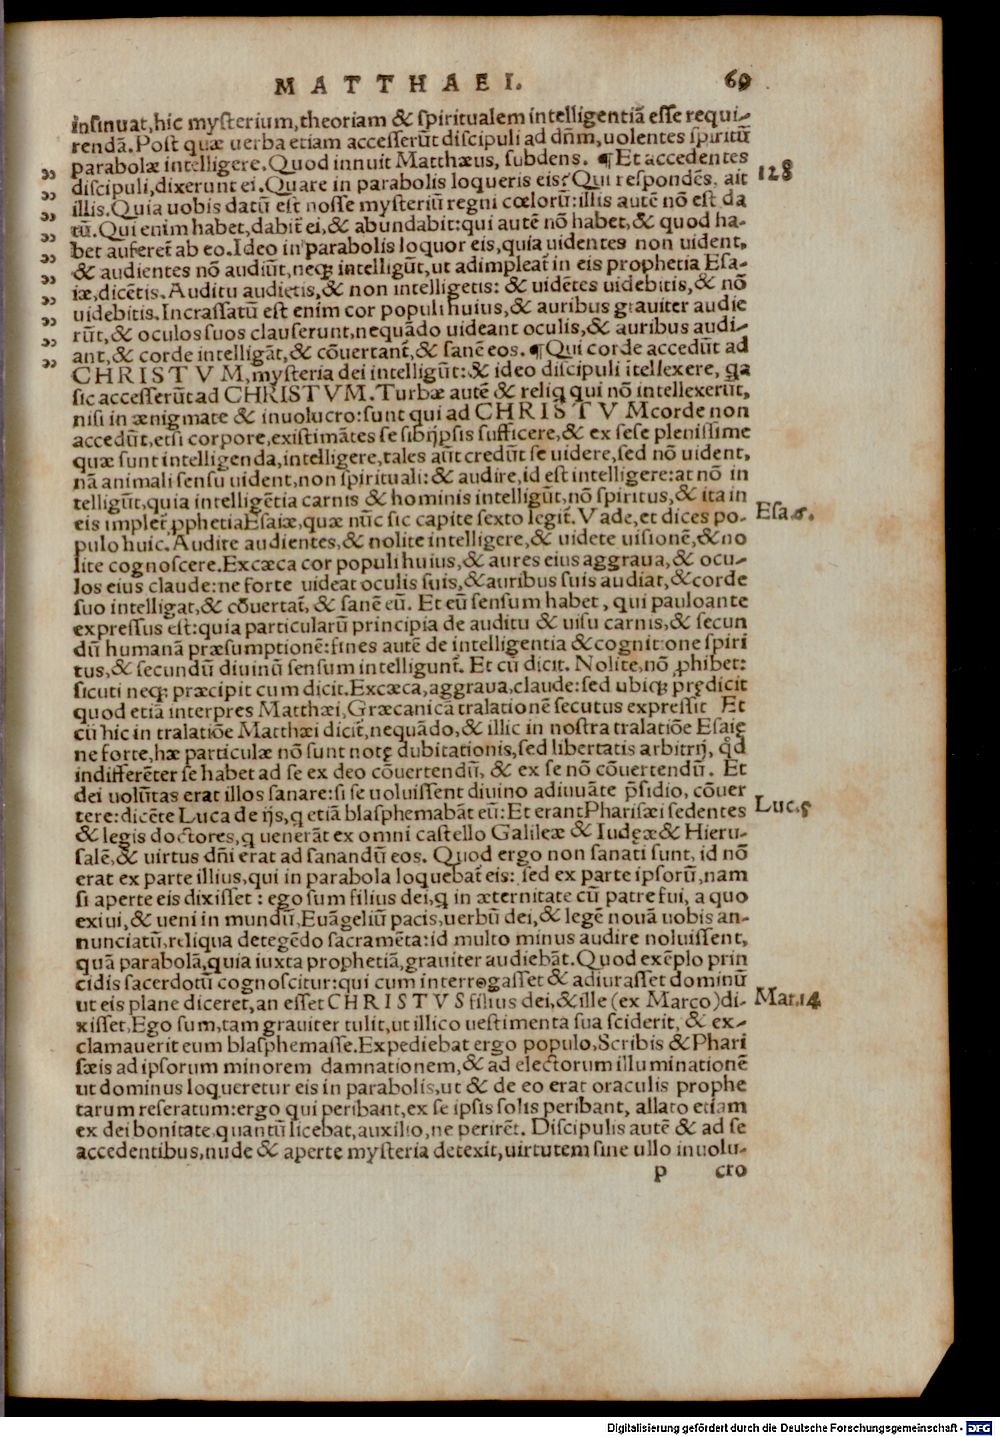 MATTHAEI. 69
insinuat,hic mysterium,theoriam & spiritualem intelligentiã esse requi-
rendã.Post quæ uerba etiam accesserũt discipuli ad dñm,uolentes spiritũ
parabolæ intelligere.Quod innuit Matthæus, subdens. ¶Et accedentes
128
discipuli,dixerunt ei.Quare in parabolis loqueris eis? Qui respondẽs, ait
illis.Quia uobis datũ est nosse mysteriũ regni cœlorũ:illis autẽ nõ est da
tũ.Qui enim habet,dabit̃ ei,& abundabit:qui autẽ nõ habet,& quod ha-
bet auferet̃ ab eo.Ideo in parabolis loquor eis,quia uidentes non uident,
& audientes nõ audiũt,neq; intelligũt,ut adimpleat̃ in eis prophetia Esa-
iæ,dicẽtis.Auditu audietis,& non intelligetis: & uidẽtes uidebitis,& nõ
uidebitis.Incrassatũ est enim cor populi huius,& auribus grauiter audie
rũt,& oculos suos clauserunt,nequãdo uideant oculis,& auribus audi-
ant,& corde intelligãt,& cõuertant̃,& sanẽ eos. ¶Qui corde accedũt ad
CHRISTVM,mysteria dei intelligũt:& ideo discipuli ītellexere, qa
sic accesserũt ad CHRISTVM.Turbæ autẽ & reliq qui nõ intellexerũt,
nisi in ænigmate & inuolucro:sunt qui ad CHRISTVM corde non
accedũt,etsi corpore,existimãtes se sibijpsis sufficere,& ex sese plenissime
quæ sunt intelligenda,intelligere,tales aũt credũt se uidere,sed nõ uident,
nã animali sensu uident,non spirituali:& audire,id est intelligere:at nõ in
telligũt,quia intelligẽtia carnis & hominis intelligũt,nõ spiritus,& ita in
eis implet̃ ꝓphetia Esaiæ,quæ nũc sic capite sexto legit̃.Vade,et dices po-
Esa.6.
pulo huic.Audite audientes,& nolite intelligere,& uidete uisionẽ,& no
lite cognoscere.Excæca cor populi huius,& aures eius aggraua,& ocu-
los eius claude:ne forte uideat oculis suis,& auribus suis audiat,& corde
suo intelligat,& cõuertat̃, & sanẽ eũ. Et eũ sensum habet, qui pauloante
expressus est:quia particularũ principia de auditu & uisu carnis,& secun
dũ humanã præsumptionẽ:fines autẽ de intelligentia & cognitione spiri
tus,& secundũ diuinũ sensum intelligunt̃. Et cũ dicit. Nolite,nõ ꝓhibet:
sicuti neq; præcipit cum dicit.Excæca,aggraua,claude:sed ubiq; prędicit
quod etiã interpres Matthæi,Græcanicã tralationẽ secutus expressit Et
cũ hic in tralatiõe Matthæi dicit̃,nequãdo,& illic in nostra tralatiõe Esaię
ne forte,hæ particulæ nõ sunt notę dubitationis,sed libertatis arbitrij, qd
indifferẽter se habet ad se ex deo cõuertendũ, & ex se nõ cõuertendũ. Et
dei uolũtas erat illos sanare:si se uoluissent diuino adiuuãte p̃sidio, cõuer
tere:dicẽte Luca de ijs,q etiã blasphemabãt eũ:Et erant Pharisæi sedentes
Luc.5
& legis doctores,q uenerãt ex omni castello Galileæ & Iudęæ & Hieru-
salẽ,& uirtus dñi erat ad sanandũ eos. Quod ergo non sanati sunt, id nõ
erat ex parte illius,qui in parabola loquebat̃ eis: sed ex parte ipsorũ,nam
si aperte eis dixisset : ego sum filius dei,q in æternitate cũ patre fui, a quo
exiui,& ueni in mundũ,Euãgeliũ pacis,uerbũ dei,& legẽ nouã uobis an-
nunciatũ,reliqua detegẽdo sacramẽta:id multo minus audire noluissent,
quã parabolã,quia iuxta prophetiã,grauiter audiebãt.Quod exẽplo prin
cidis sacerdotũ cognoscitur:qui cum interrogasset & adiurasset dominũ
ut eis plane diceret,an esset CHRISTVS filius dei,& ille (ex Marco)di-
Mar.14
xisset,Ego sum,tam grauiter tulit,ut illico uestimenta sua sciderit, & ex-
clamauerit eum blasphemasse.Expediebat ergo populo,Scribis & Phari
sæis ad ipsorum minorem damnationem,& ad electorum illuminationẽ
ut dominus loqueretur eis in parabolis,ut & de eo erat oraculis prophe
tarum reseratum:ergo qui peribant,ex se ipsis solis peribant, allato etiam
ex dei bonitate,quantũ licebat,auxilio,ne perirẽt. Discipulis autẽ & ad se
accedentibus,nude & aperte mysteria detexit,uirtutem sine ullo inuolu-
p cro
Digitalisierung gefördert durch die Deutsche Forschungsgemeinschaft - DFG